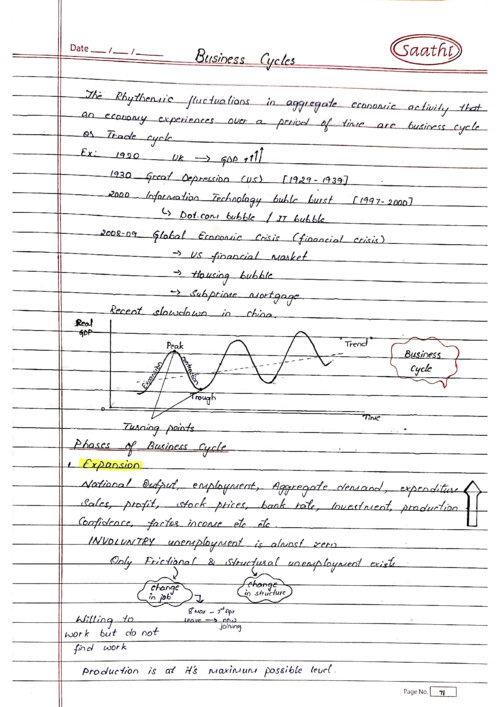 Date __/__/__
Saathi
Business Cycles
The Rhythemic fluctuations in aggregate economic activity that
an economy experiences over a period of time are business cycle
or Trade cycle
Ex: 1920 UK → GDP ↑↑↑
1930 Great Depression (US) [1929-1939]
2000 Information Technology buble burst [1997-2000]
↳ Dot.com bubble / IT bubble
2008-09 Global Economic Crisis (financial crisis)
→ US financial market
→ Housing bubble
→ Subprime mortgage
Recent slowdown in china.
Real
GDP
Peak
Trend
Expansion
contraction
Business
Cycle
Trough
0
Time
Turning points
Phases of Business Cycle
1. Expansion
National Output, employment, Aggregate demand, expenditure
Sales, profit, stock prices, bank rate, Investment, production
Confidence, factor income etc etc
INVOLUNTRY unemployment is almost zero
Only Frictional & structural unemployment exists
change
in job
change
in structure
leave → new
joining
Willing to
work but do not
find work
Production is at it's maximum possible level.
Page No. 71